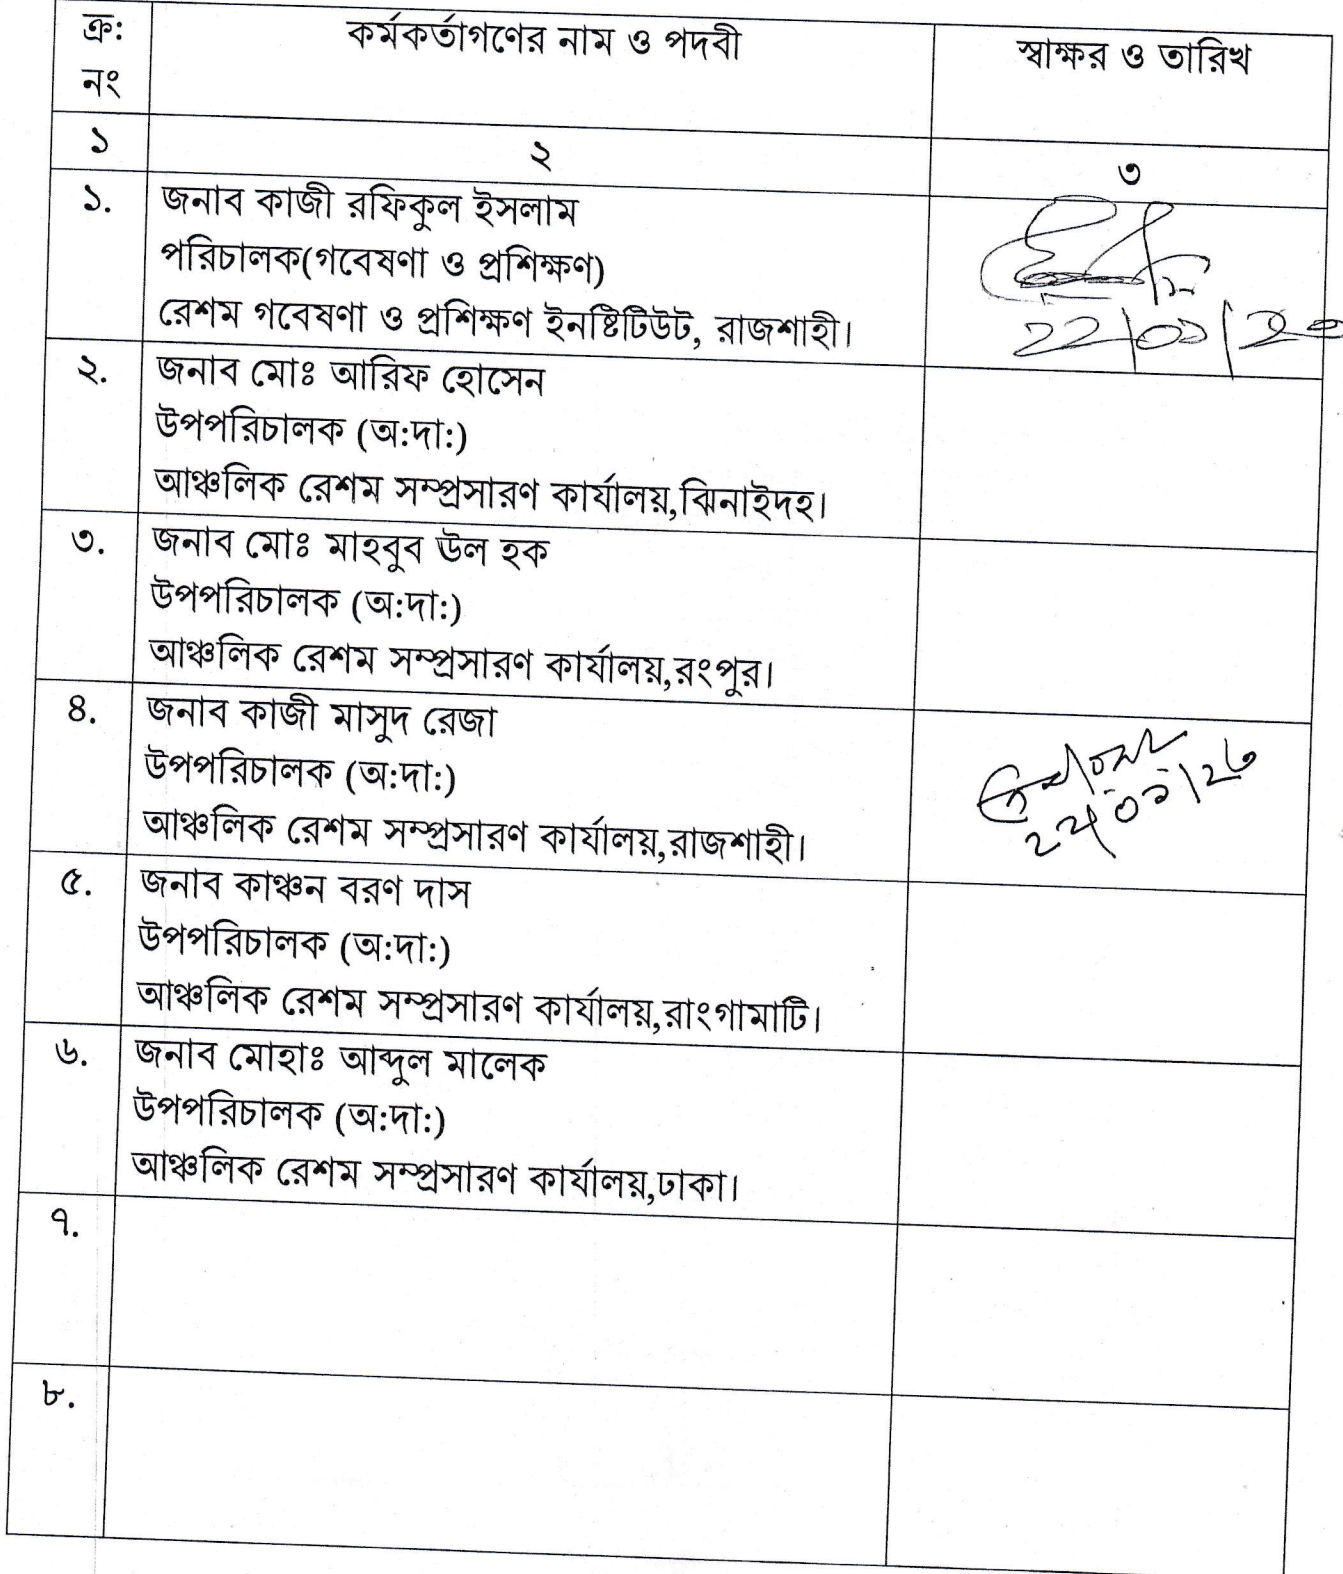 ক্র: কর্মকর্তাগণের নাম ও পদবী স্বাক্ষর ও তারিখ
নং
১ ২ ৩
১. জনাব কাজী রফিকুল ইসলাম
পরিচালক(গবেষণা ও প্রশিক্ষণ)
রেশম গবেষণা ও প্রশিক্ষণ ইনষ্টিটিউট, রাজশাহী।
২. জনাব মোঃ আরিফ হোসেন
উপপরিচালক (অ:দা:)
আঞ্চলিক রেশম সম্প্রসারণ কার্যালয়,ঝিনাইদহ।
৩. জনাব মোঃ মাহবুব উল হক
উপপরিচালক (অ:দা:)
আঞ্চলিক রেশম সম্প্রসারণ কার্যালয়,রংপুর।
৪. জনাব কাজী মাসুদ রেজা
উপপরিচালক (অ:দা:)
আঞ্চলিক রেশম সম্প্রসারণ কার্যালয়,রাজশাহী।
৫. জনাব কাঞ্চন বরণ দাস
উপপরিচালক (অ:দা:)
আঞ্চলিক রেশম সম্প্রসারণ কার্যালয়,রাংগামাটি।
৬. জনাব মোহাঃ আব্দুল মালেক
উপপরিচালক (অ:দা:)
আঞ্চলিক রেশম সম্প্রসারণ কার্যালয়,ঢাকা।
৭.
৮.